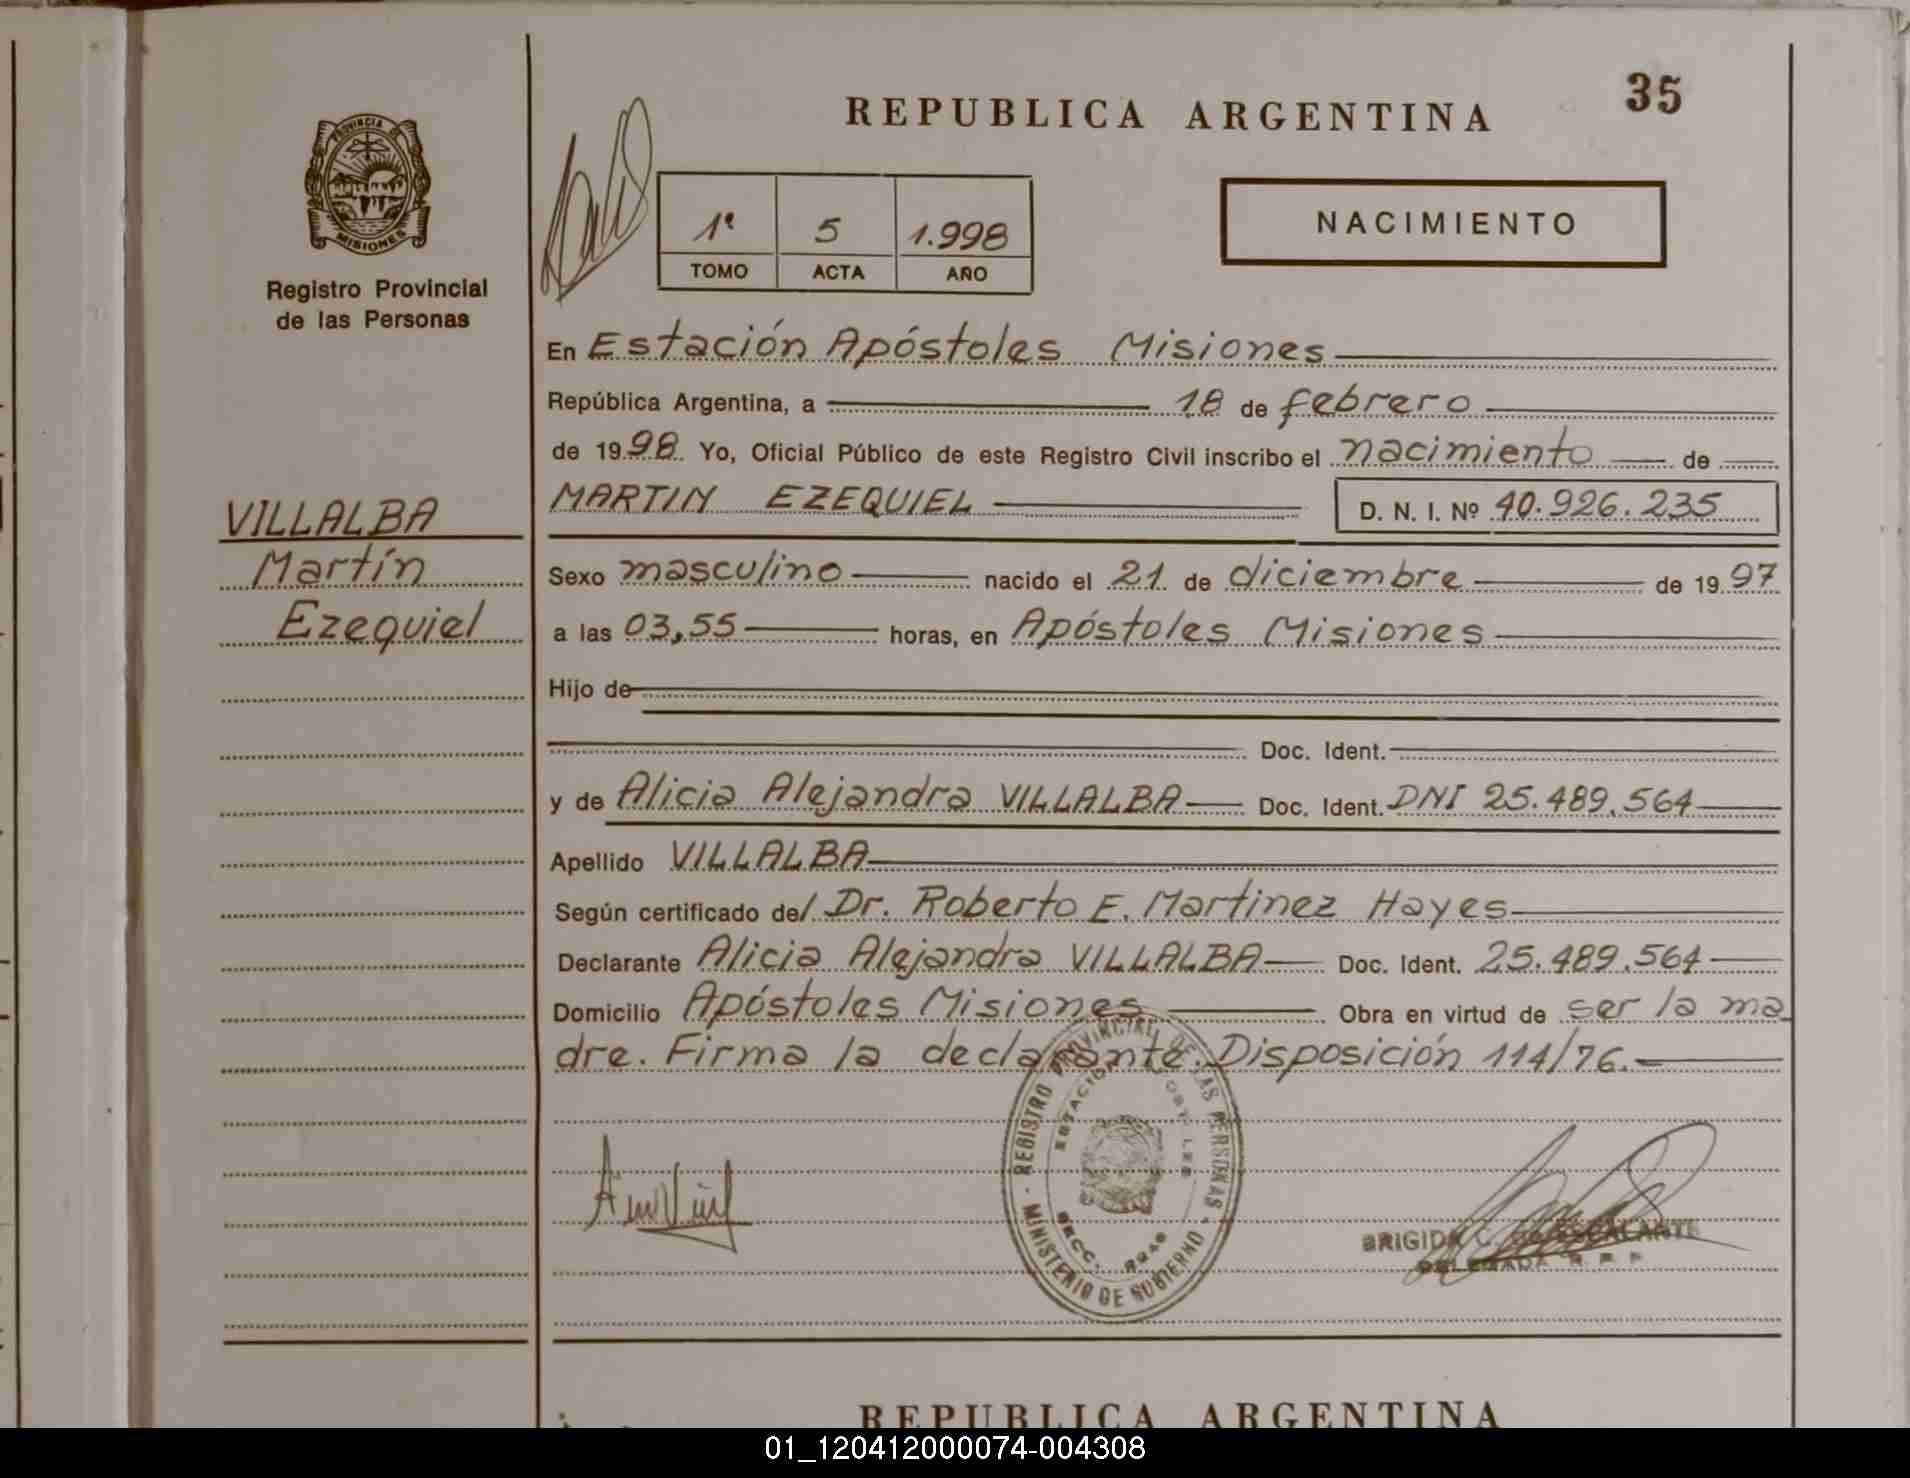 35
REPUBLICA ARGENTINA
PROVINCIA DE
MISIONES
Registro Provincial
de las Personas
1º 5 1.998
TOMO ACTA AÑO
NACIMIENTO
VILLALBA
Martín
Ezequiel
En Estación Apóstoles Misiones
República Argentina, a 18 de febrero
de 1998 Yo, Oficial Público de este Registro Civil inscribo el nacimiento de
MARTIN EZEQUIEL D. N. I. Nº 40.926.235
Sexo masculino nacido el 21 de diciembre de 1997
a las 03,55 horas, en Apóstoles Misiones
Hijo de
Doc. Ident.
y de Alicia Alejandra VILLALBA Doc. Ident. DNI 25.489.564
Apellido VILLALBA
Según certificado del Dr. Roberto E. Martinez Hayes
Declarante Alicia Alejandra VILLALBA Doc. Ident. 25.489.564
Domicilio Apóstoles Misiones Obra en virtud de ser la ma
dre. Firma la declarante. Disposición 114/76.-
REGISTRO PROVINCIAL DE LAS PERSONAS
MINISTERIO DE GOBIERNO
ESTACION
SECC.
BRIGIDA C. DE ESCALANTE
DELEGADA R. P. P.
REPUBLICA ARGENTINA
01_120412000074-004308